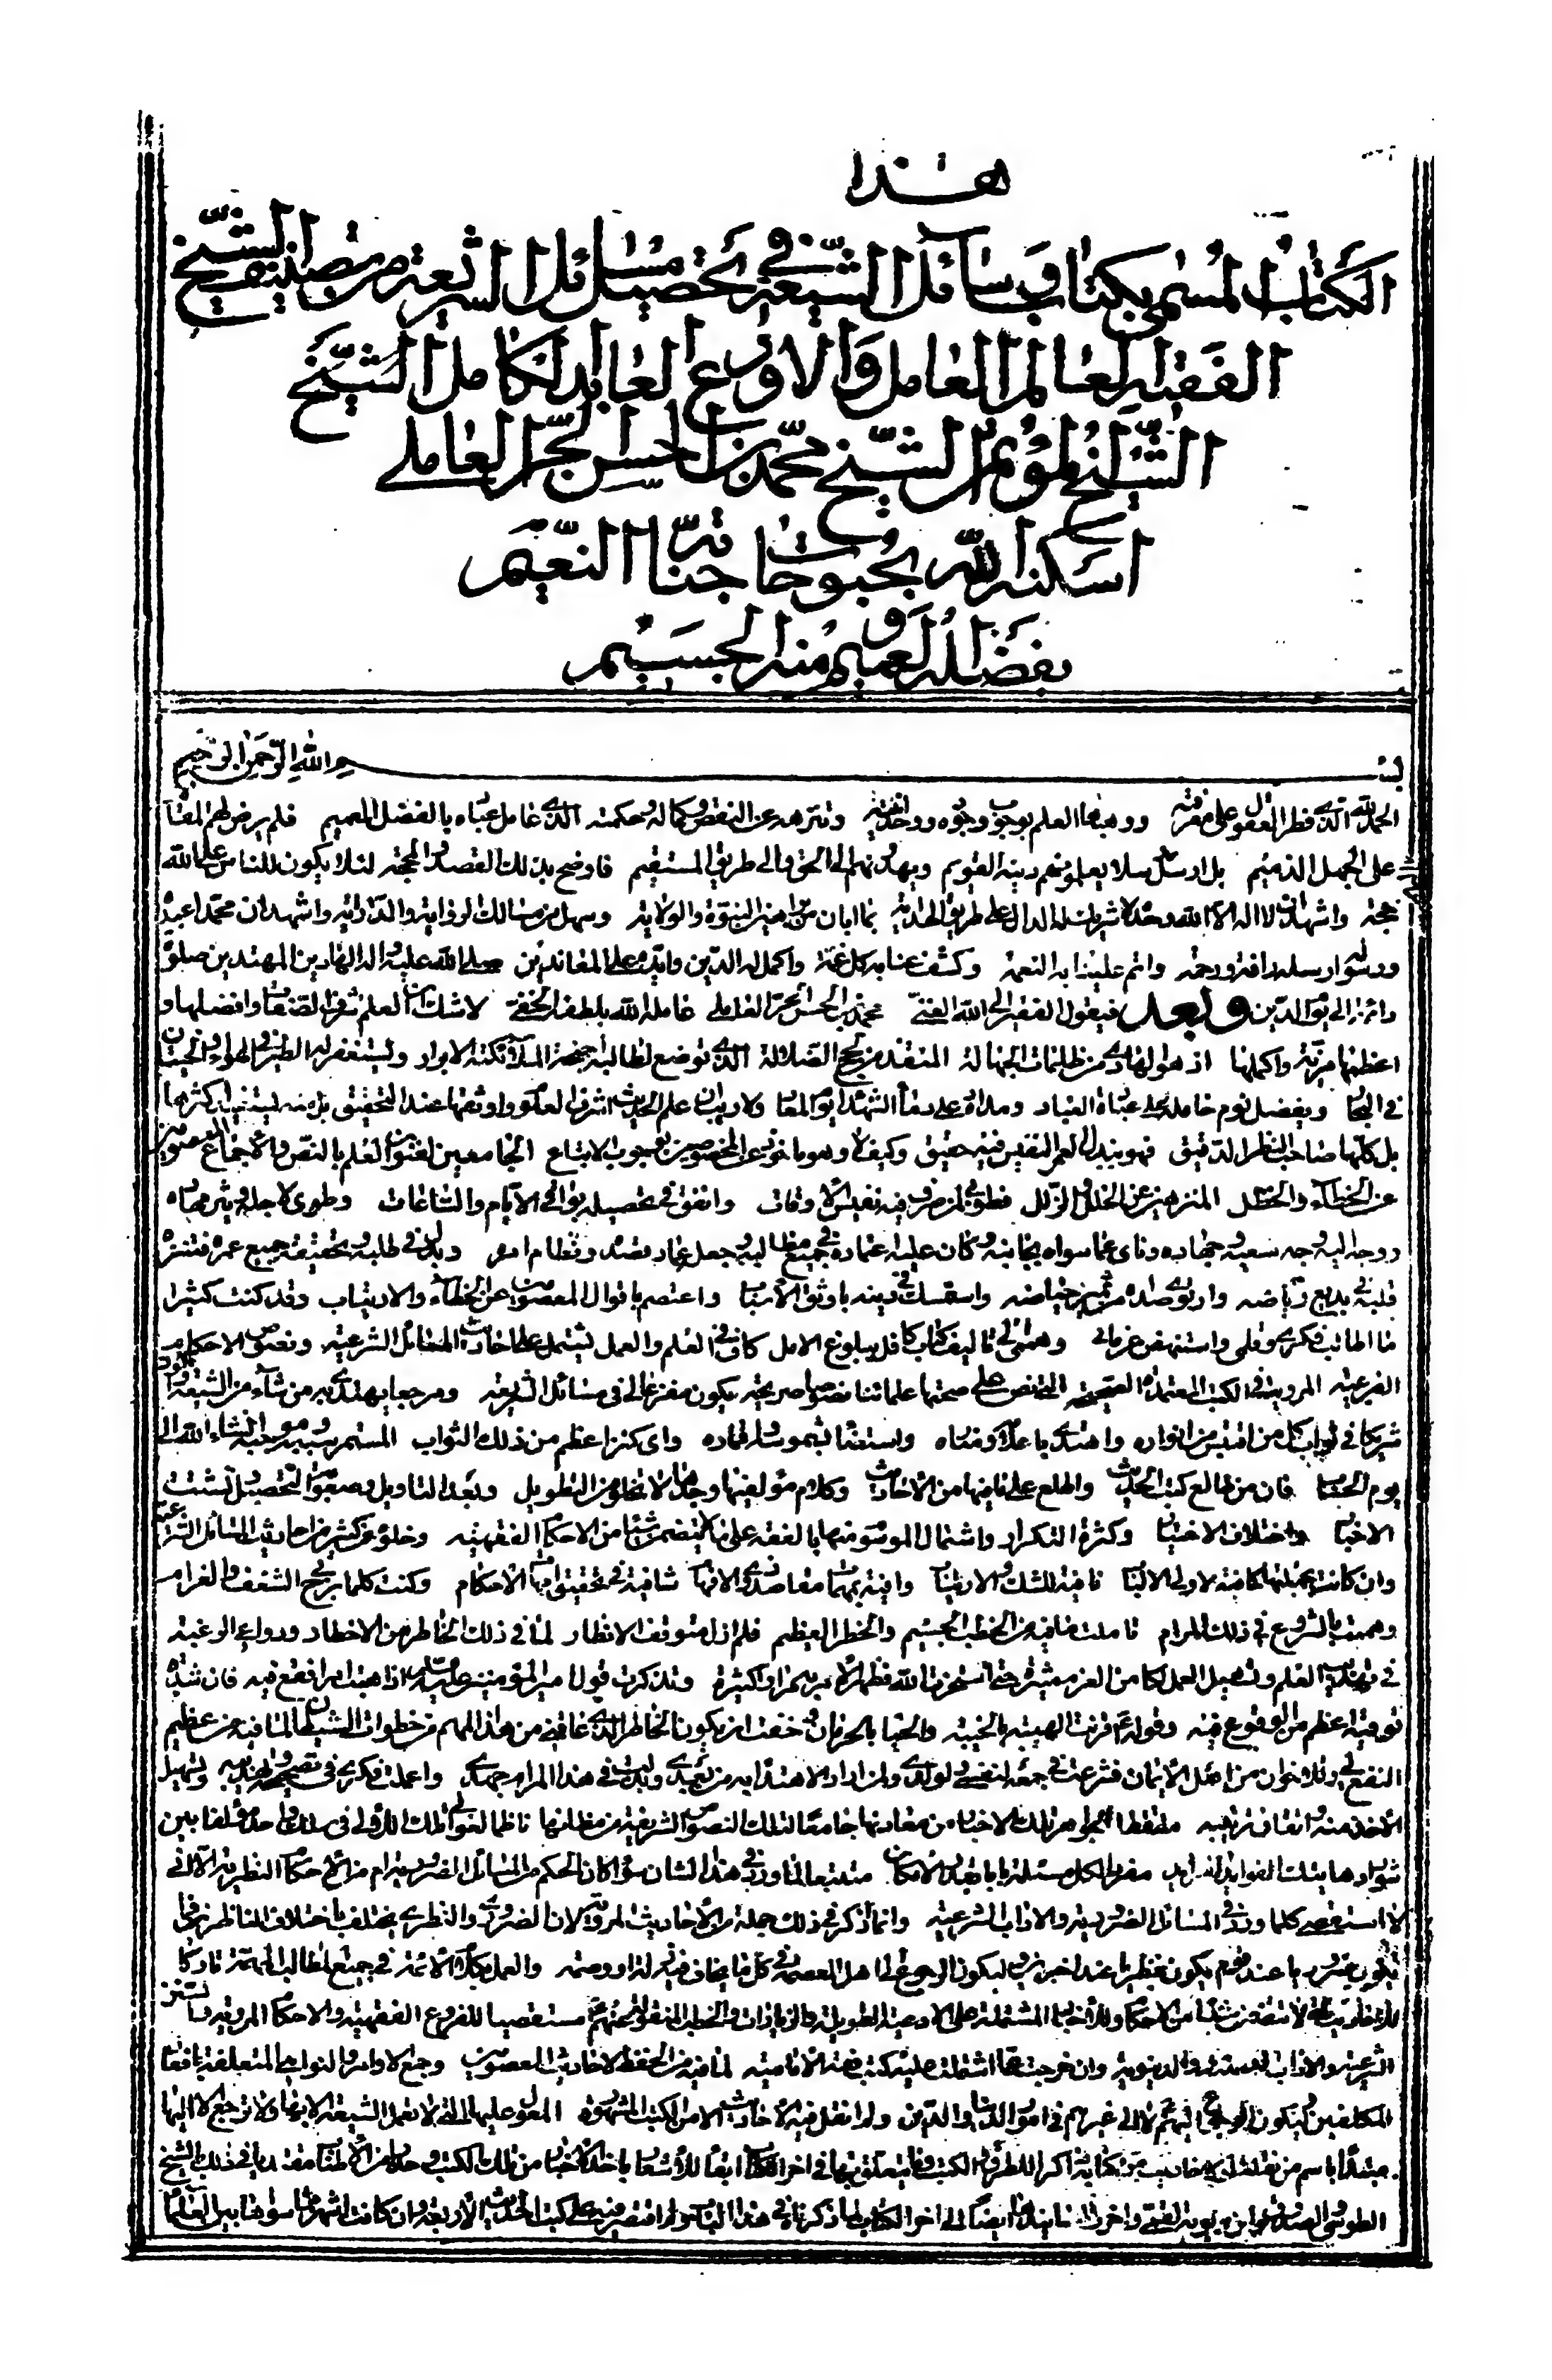 هذا
الكتاب المسمى بكتاب وسائل الشيعة في تحصيل مسائل الشريعة من تصانيف الشيخ
الفقيه العالم العامل والاورع العابد الكامل الشيخ
الشيخ محمد بن الحسن الحر العاملي
اسكنه الله بحبوحات جنات النعيم
بفضله العميم و منه الجسيم
بسم الله الرحمن الرحيم
الحمد لله الذي فطر العقول على معرفته ووهبها العلم بوجوب وجوده ووحدانيته وتنزهه عن النقص وكماله وحكمته الذي عامل عباده بالفضل العميم فلم يرض لهم المقام
على الجهل الذميم بل ارسل رسلا يعلمونهم دينه القويم ويهدونهم الى الحق والى طريق المستقيم فاوضح بذلك القصد والمحجة لئلا يكون للناس على الله
حجة واشهد ان لا اله الا الله وحده لا شريك له الدال على طريق الهداية بما ابان من براهين النبوة والولاية وسهل من مسالك الرواية والدراية واشهد ان محمدا عبده
ورسوله ارسله رافة ورحمة واتم علينا به النعمة وكشف عنا به كل غمة واكمل له الدين وايده على المعاندين صلى الله عليه واله الهادين المهتدين صلوة
دائمة الى يوم الدين وبعد فيقول الفقير الى الله الغني محمد بن الحسن الحر العاملي عامله الله بلطفه الخفي لا شك ان العلم اشرف الصفات وافضلها و
اعظمها مزية واكملها اذ هو الهادي من ظلمات الجهالة المنقذ من لجج الضلالة الذي توضع لطالبه اجنحة الملائكة الابرار ويستغفر له الطير في الهواء والحيتان
في البحار ويفضل نوم حامله على عبادة العباد ومداده على دماء الشهداء يوم المعاد ولا ريب ان علم الحديث اشرف العلوم واوثقها عند التحقيق بل منه يستفيد اكثرها
بل كلها صاحب النظر الدقيق فهو ببذل العمر النفيس فيه حقيق وكيف لا وهو ماخوذ عن المخصوصين بوجوب الاتباع الجامعين لفنون العلم بالنص والاجماع المعصومين
عن الخطاء والخطل المنزهين عن الخلل والزلل فطوبى لمن صرف فيه نفيس الاوقات وانفق في تحصيله بواقي الايام والساعات وطوى لاجله وثير مهاده
ووجه اليه وجه سعيه وجهاده ونأى عما سواه بجانبه وكان عليه اعتماده في جميع مطالبه وجعله عماد قصده ونظام امره وبذل في طلبه وتحقيقه جميع عمره فتنزه
قلبه في بديع رياضه وارتوى صداه من نمير حياضه واستمسك في دينه باوثق الاسباب واعتصم باقوال المعصومين عن الخطاء والارتياب وقد كنت كثيرا
ما اطالب فكري وقلمي واستنهض عزماتي وهممي الى تاليف كتاب كافل ببلوغ الامل كاف في العلم والعمل يشتمل على احاديث المسائل الشرعية ونصوص الاحكام
الفرعية المروية في الكتب المعتمدة الصحيحة التي نص على صحتها علمائنا نصوصا صريحة يكون مفزعا لى في مسائل الشريعة ومرجعا يهتدي به من شاء من الشيعة واكون
شريكا في ثواب كل من اقتبس من انواره واهتدى باعلامه ومناره واستضاء بشموسه واقماره واى كنز اعظم من ذلك الثواب المستمر سببه وموجبه انشاء الله الى
يوم الحساب فان من طالع كتب الحديث واطلع على ما فيها من الاحاديث وكلام مؤلفيها وجدها لا تخلو من التطويل وبعد التاويل وصعوبة التحصيل وتشتت
الاخبار واختلاف الاختيار وكثرة التكرار واشتمال الموسوم منها بالفقه على ما لا يتضمن شيئا من الاحكام الفقهية وخلوه عن كثير من احاديث المسائل الشرعية
وان كانت بجملتها كافية لاولي الالباب نافية للشك والارتياب وافية بمهمات مقاصد ذوي الافهام شافية في تحقيق امهات الاحكام وكنت كلما برح بي الشغف والغرام
وهممت بالشروع في ذلك المرام تاملت ما فيه من الخطب الجسيم والخطر العظيم فلم ازل متوقف الانظار لما في ذلك الخاطر من الاخطار ودواعي الرغبة
في تهذيب العلم وتسهيل العمل لكامن العزم مثيرة حتى استخرت الله فظهر الامر به مرارا كثيرة وتذكرت قول امير المؤمنين عليه السلام اذا هبت امرا فقع فيه فان شدة
توقيه اعظم من الوقوع فيه وقوله قرنت الهيبة بالخيبة والحياء بالحرمان وخفت ان يكون الخاطر الذي عاقني من هذا المهم من خطوات الشيطان لما فيه من عظيم
النفع لي وللاخوان من اهل الايمان فشرعت في جمعه لنفسي ولولدي ولمن اراد الاهتداء به من بعدي وبذلت في هذا المرام جهدي واعملت فكري في تصحيحه وتهذيبه وتسهيل
الاخذ منه واتقان ترتيبه ملتقطا لجواهر تلك الاخبار من معادنها جامعا لتلك النصوص الشريفة من مظانها ناظما لغوالي تلك اللآلي في سلك واحد مؤلفا بين
شوارد هاتيك الفوائد الفرايد مفردا لكل مسئلة بابا بقدر الامكان متتبعا لما ورد في هذا الشان سواء كان الحكم من المسائل الضرورية ام من الاحكام النظرية الا اني
لا استقصي كلما ورد في المسائل الضرورية والاداب الشرعية وانما اذكر في ذلك جملة من الاحاديث المروية لان الضروري والنظري يختلف باختلاف الناظرين فما
يكون ضروريا عند قوم يكون نظريا عند اخرين وليكون الرجوع الى اهل العصمة في كل ما يخاف فيه زلة او وصمة والعمل بكلام الائمة في جميع المطالب المهمة تاركا
للاحاديث التي لا تتضمن شيئا من الاحكام وللاخبار المشتملة على الادعية الطويلة والزيارات والخطب المنقولة عنهم مستقصيا للفروع الفقهية والاحكام المروية والسنن
الشرعية والاداب الدينية والدنيوية وان خرجت عما اشتملت عليه كتب فقه الامامية لما فيه من الحفظ لاحاديث المعصومين وجمع الاوامر والنواهي المتعلقة بافعال
المكلفين وليكون الرجوع اليهم لا الى غيرهم في امور الدنيا والدين ولم انقل فيه الاحاديث الا من الكتب المشهورة المعول عليها التي لا تعمل الشيعة الا بها ولا ترجع الا اليها
مبتدئا باسم من نقلت الاحاديث من كتابه ذاكرا للطرق والكتب وما يتعلق بها في اخر الكتاب ابقاء للاشعار باخذ الاخبار من تلك الكتب وحذرا من الاطناب مقتديا في ذلك بالشيخ
الطوسي والصدوق ابن بابويه القمي واخرت اسانيدهما ايضا الى اخر الكتاب لما ذكرناه في هذا الباب ولم اقتصر فيه على كتب الحديث الاربعة وان كانت اشهر مما سواها بين العلماء